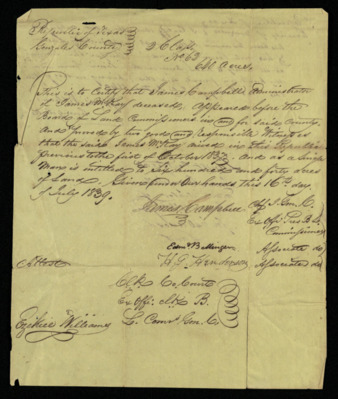 Republic of Texas
Gonzales County
2 Class
No 63
640 Acres
This is to certify that James Campbell Administrator
of James McCoy deceased, Appeared before the
Board of Land Commissioners for said County,
and proved by two good and responsible Witnesses
that the said James McCoy arrived in this Republic
previous to the first of October 1837 and as a Single
Man is entitled to Six hundred and forty Acres
of Land. Given under our hands this 16th day
of July 1839.
James Campbell
Eden Bellinger
Associate do
Associate do
Attest
Clk Co. Court
Ex Offi. Clk B.
L. Coms. Gon. C.
Ezekiel Williams